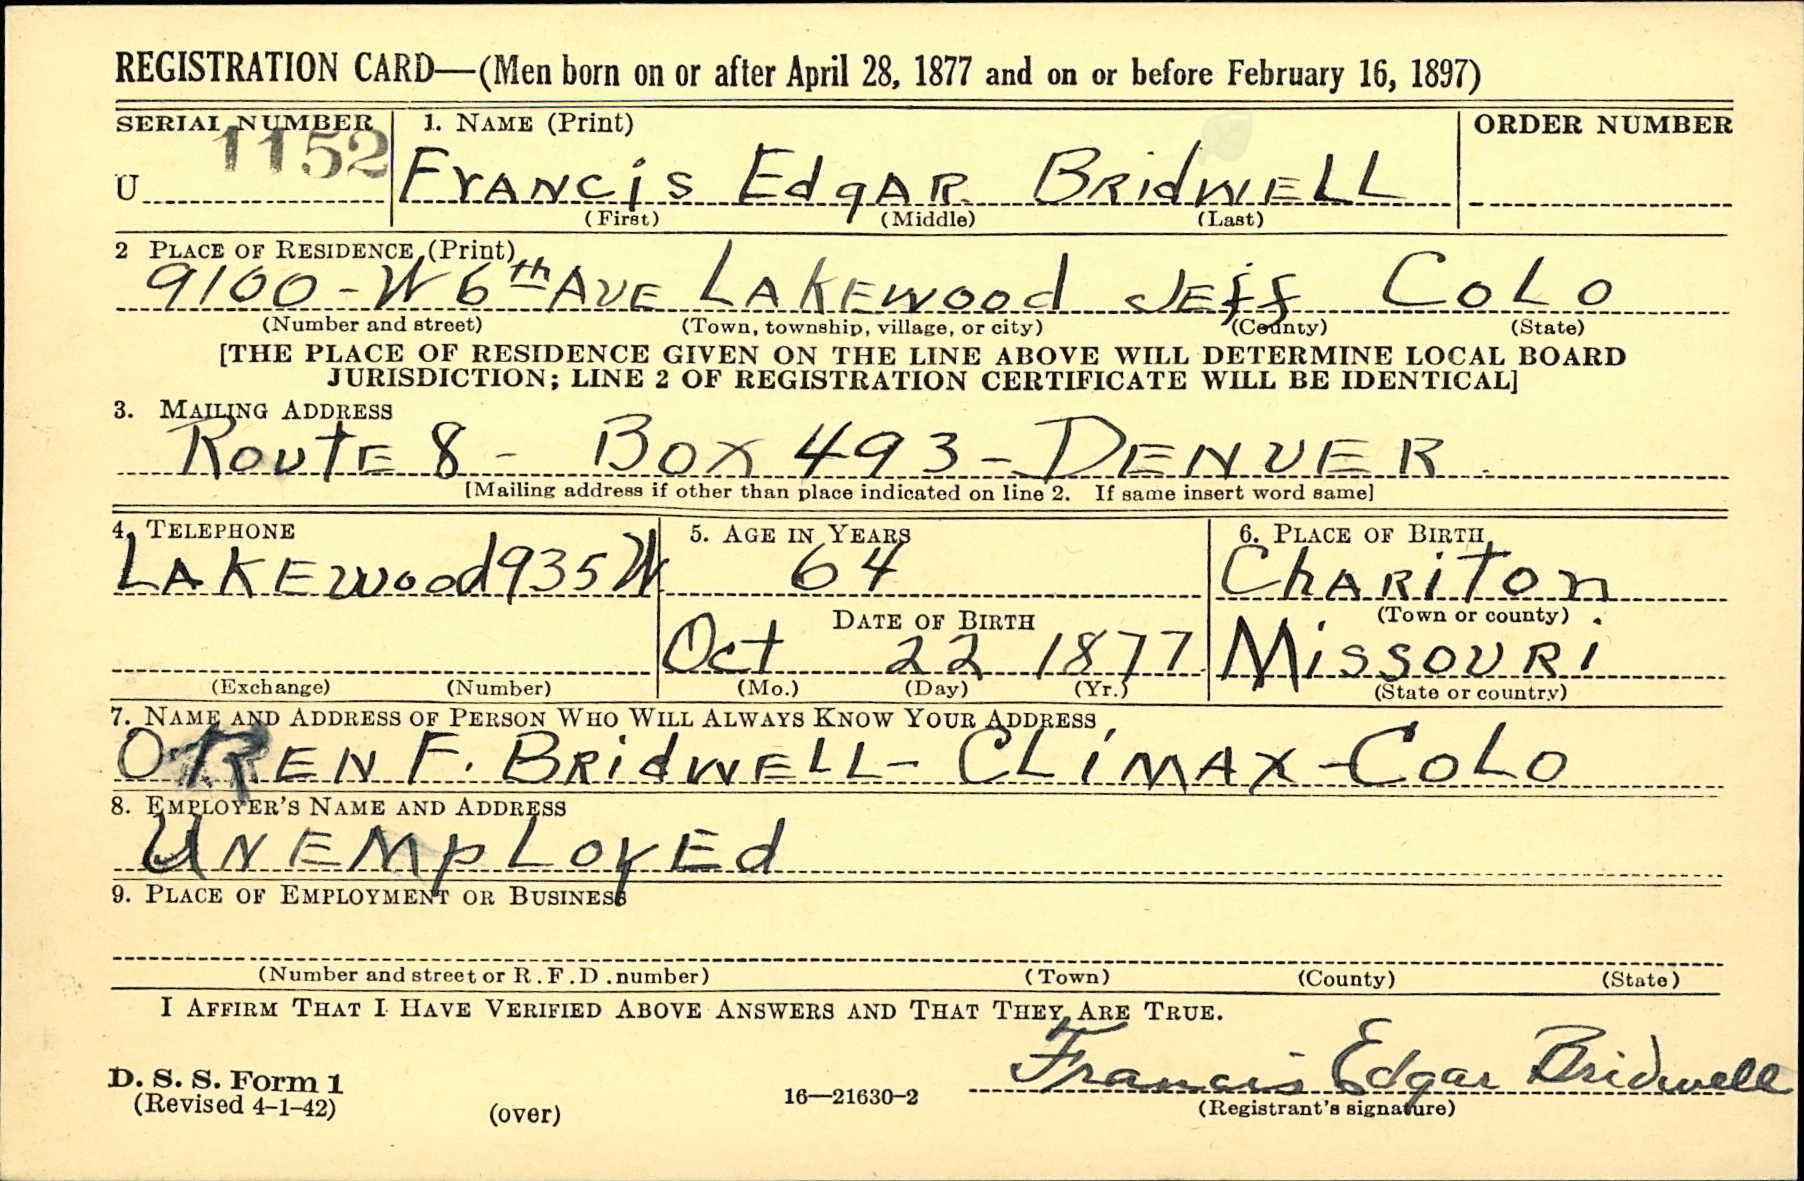 REGISTRATION CARD—(Men born on or after April 28, 1877 and on or before February 16, 1897)
SERIAL NUMBER 1. NAME (Print) ORDER NUMBER
1152
U Francis Edgar Bridwell
(First) (Middle) (Last)
2 PLACE OF RESIDENCE (Print)
9100 - W 6th Ave Lakewood Jeff Colo
(Number and street) (Town, township, village, or city) (County) (State)
[THE PLACE OF RESIDENCE GIVEN ON THE LINE ABOVE WILL DETERMINE LOCAL BOARD
JURISDICTION; LINE 2 OF REGISTRATION CERTIFICATE WILL BE IDENTICAL]
3. MAILING ADDRESS
Route 8 - Box 493 - Denver
[Mailing address if other than place indicated on line 2. If same insert word same]
4. TELEPHONE 5. AGE IN YEARS 6. PLACE OF BIRTH
Lakewood 935 W 64 Chariton
DATE OF BIRTH (Town or county)
Oct 22 1877 Missouri
(Exchange) (Number) (Mo.) (Day) (Yr.) (State or country)
7. NAME AND ADDRESS OF PERSON WHO WILL ALWAYS KNOW YOUR ADDRESS
Oren F. Bridwell - Climax - Colo
8. EMPLOYER'S NAME AND ADDRESS
Unemployed
9. PLACE OF EMPLOYMENT OR BUSINESS
(Number and street or R.F.D. number) (Town) (County) (State)
I AFFIRM THAT I HAVE VERIFIED ABOVE ANSWERS AND THAT THEY ARE TRUE.
Francis Edgar Bridwell
D. S. S. Form 1
(Revised 4-1-42) (over) 16—21630-2 (Registrant's signature)